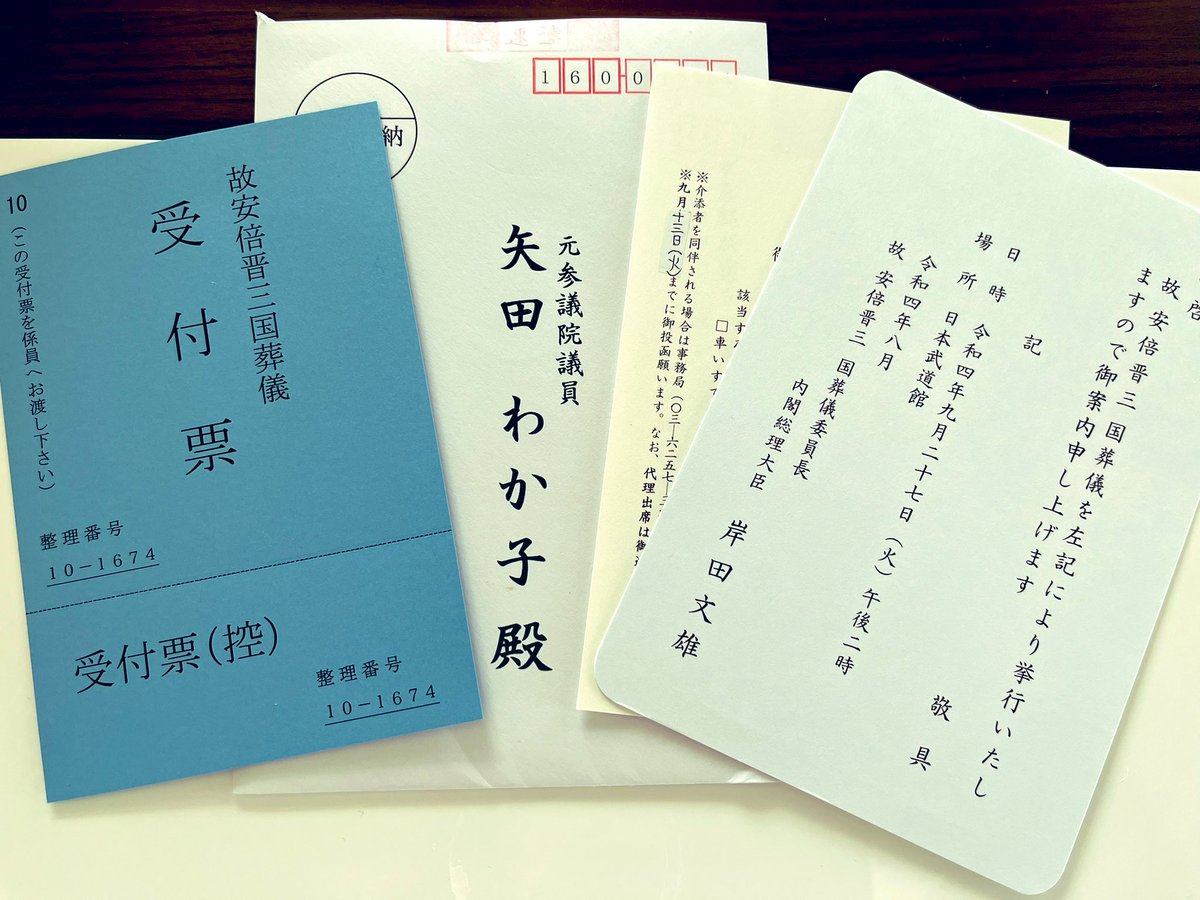 故安倍晋三国葬儀
受付票
10(この受付票を係員へお渡し下さい)
整理番号
10-1674
受付票(控)
整理番号
10-1674
160-0
納
元参議院議員
矢田わか子殿
該当す
□車いす
※介添者を同伴される場合は事務局(〇三―六二五七―三
※九月十三日(火)までに御投函願います。なお、代理出席は御
啓
故安倍晋三国葬儀を左記により挙行いたし
ますので御案内申し上げます
敬具
記
日時 令和四年九月二十七日(火)午後二時
場所 日本武道館
令和四年八月
故安倍晋三 国葬儀委員長
内閣総理大臣 岸田文雄